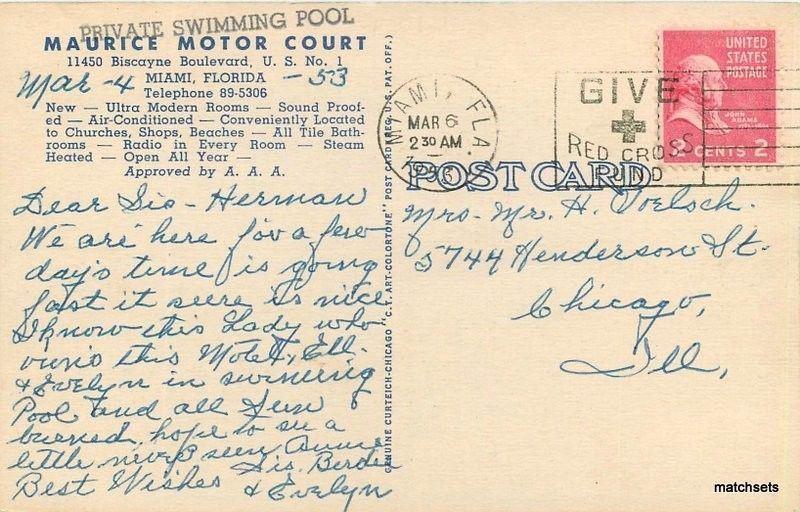 PRIVATE SWIMMING POOL
MAURICE MOTOR COURT
11450 Biscayne Boulevard, U. S. No. 1
Mar - 4 MIAMI, FLORIDA - 53
Telephone 89-5306
New — Ultra Modern Rooms — Sound Proof-
ed — Air-Conditioned — Conveniently Located
to Churches, Shops, Beaches — All Tile Bath-
rooms — Radio in Every Room — Steam
Heated — Open All Year —
Approved by A. A. A.
Dear Sis - Herman
We are here for a few
days time is going
fast it sure is nice
I know this Lady who
owns this Motel, Ell.
& Evelyn in swimming
Pool and all Sun
burned, hope to see a
little
Best Wishes Sis. Berdie
& Evelyn
GENUINE CURTEICH-CHICAGO "C.T. ART-COLORTONE" POST CARD (REG. U.S. PAT. OFF.)
MIAMI, FLA.
MAR 6
2 30 AM
1953
GIVE
RED CROSS
FUND
UNITED
STATES
POSTAGE
JOHN
ADAMS
2 CENTS 2
POST CARD
Mrs - Mr. H. Voelsch.
5744 Henderson St.
Chicago,
Ill,
matchsets